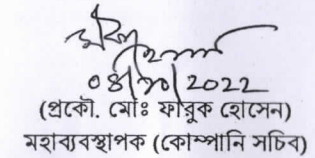 ০৪/১০/2022
(প্রকৌ. মোঃ ফারুক হোসেন)
মহাব্যবস্থাপক (কোম্পানি সচিব)